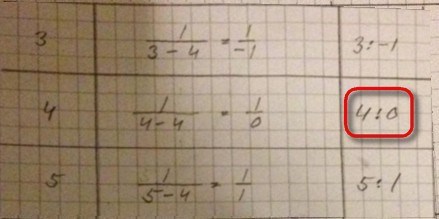 3 1/(3-4) = 1/-1 3:-1
4 1/(4-4) = 1/0 4:0
5 1/(5-4) = 1/1 5:1